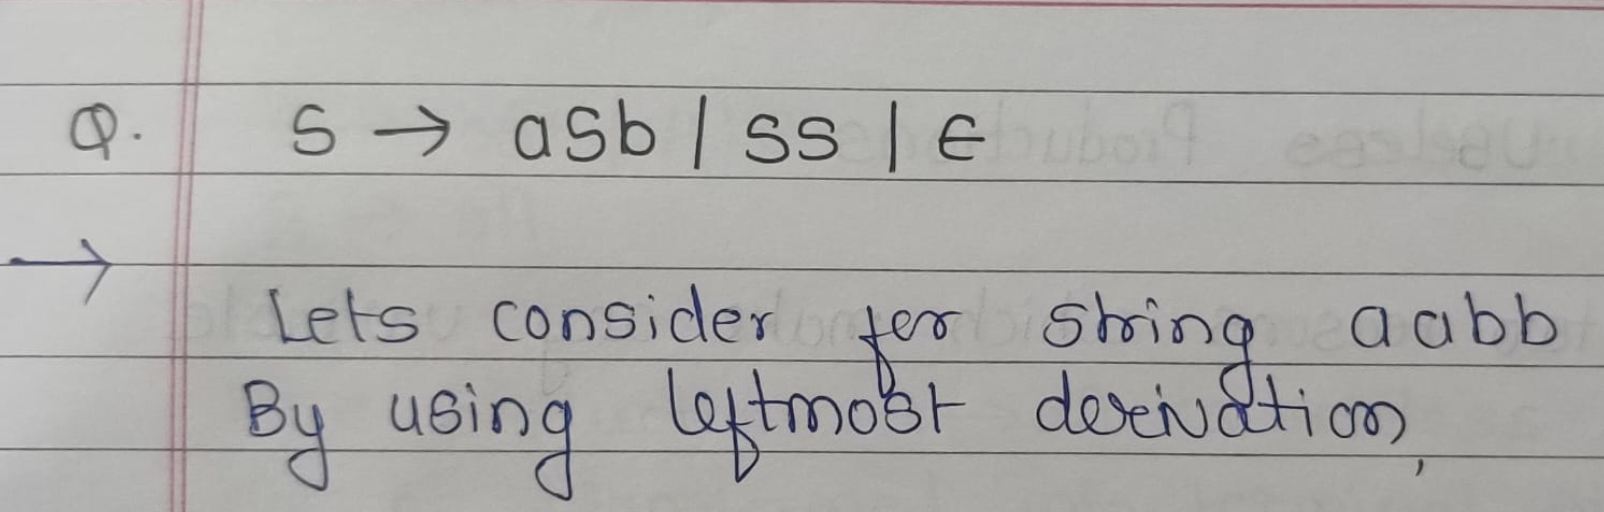 Q. S → aSb | SS | ϵ
→
Lets consider for string aabb
By using leftmost derivation,